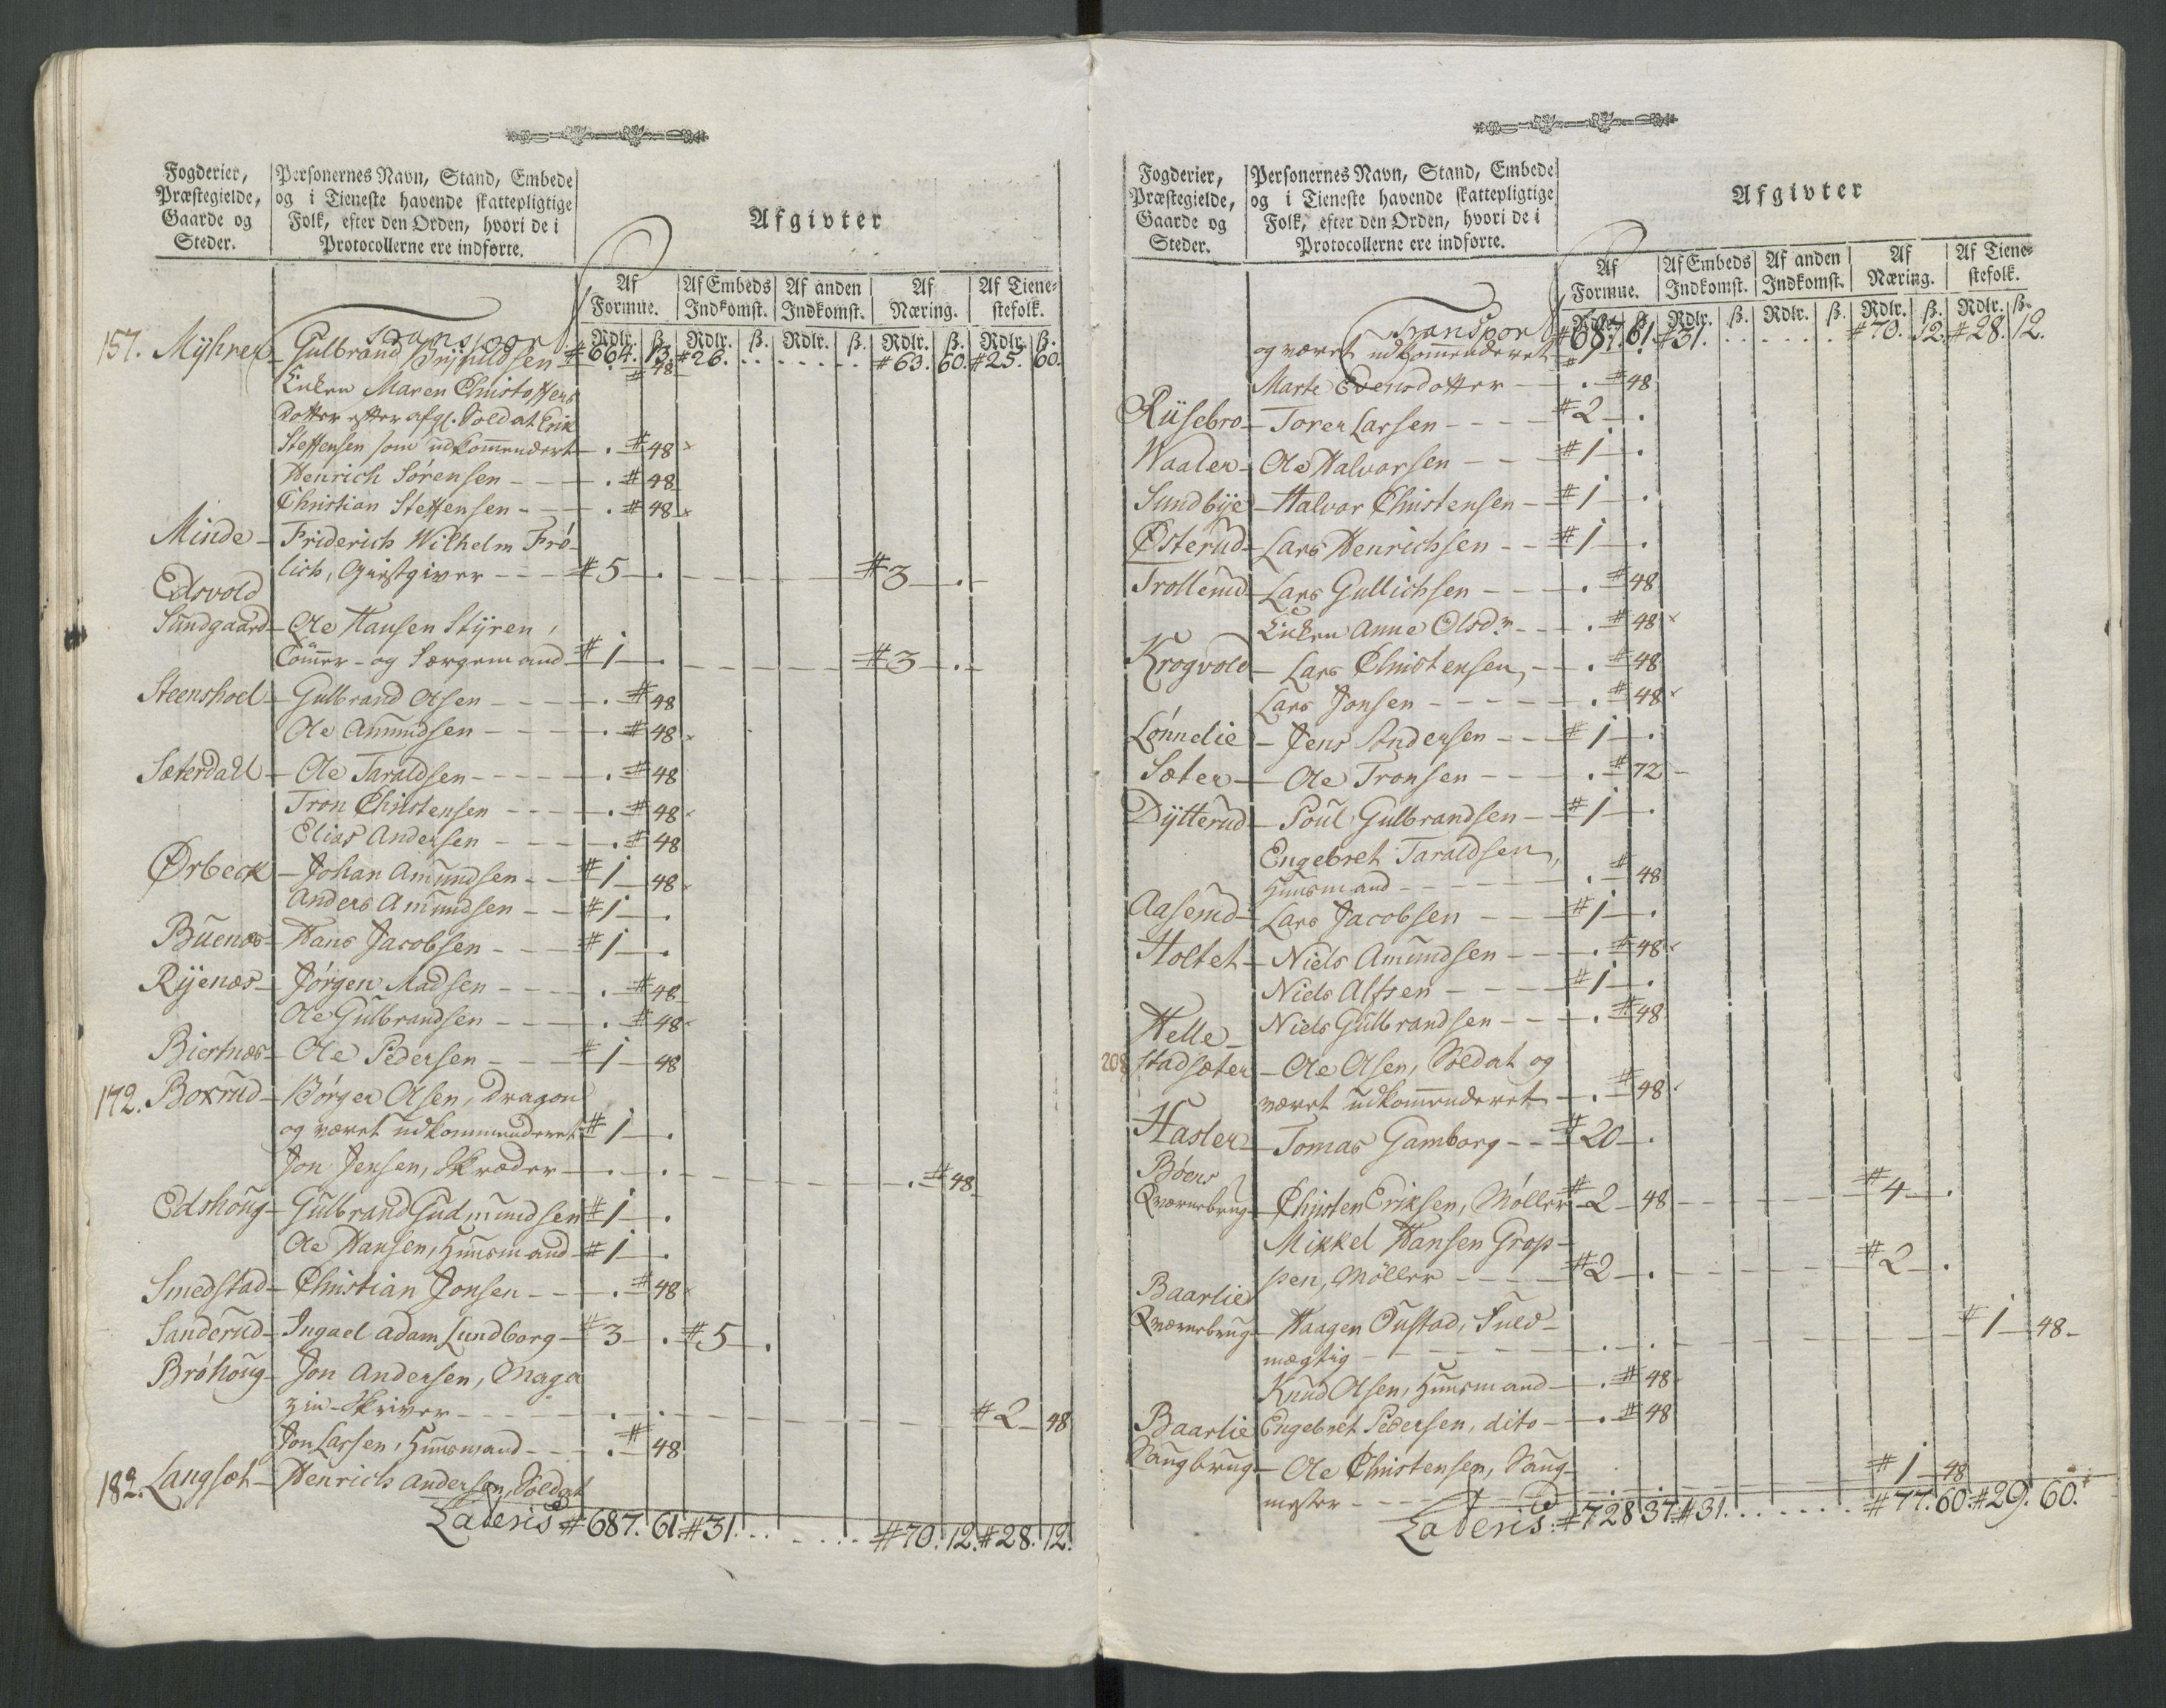 Fogderier,
Præstegielde,
Gaarde og
Steder.
Personernes Navn, Stand, Embede
og i Tieneste havende skattepligtige
Folk, efter den Orden, hvori de i
Protocollerne ere indførte.
Afgivter
Af Formue. Af Embeds Indkomst. Af anden Indkomst. Af Næring. Af Tienestefolk.
Rdlr. ß. Rdlr. ß. Rdlr. ß. Rdlr. ß. Rdlr. ß.
Transport #664. 13. #26. #63. 60. #25. 60.
157. Myhrer - Gulbrand #48
Enken Maren Christoffers
dotter efter afg. Soldat Erik
Steffensen som udkommendert - . #48
Henrich Sørensen - . #48
Christian Steffensen - . #48
Minde - Friderich Wilhelm Frø-
lich, Giestgiver - #5 . #3 .
Edsvold
Sundgaard - Ole Hansen Styren,
Tømmer- og Særgemand #1 . #3 .
Steenshoel - Gulbrand Olsen - . #48
Ole Amundsen - . #48
Sæterdall - Ole Taraldsen - . #48
Tron Christensen - . #48
Elias Andersen - . #48
Ørbeck - Johan Amundsen - #1 48
Anders Amundsen - #1 .
Buenæs - Hans Jacobsen - #1 .
Ryenæs - Jørgen Madsen - . #48
Ole Gulbrandsen - . #48
Biertnæs - Ole Pedersen - #1 48
172. Boxrud - Børger Olsen, Dragon
og været udkommenderet #1 .
Jon Jensen, Skræder - . . . #48
Edshoug - Gulbrand Gudmundsen #1 .
Ole Hansen, Huusmand #1 .
Smedstad - Christian Jonsen - . #48
Sanderud - Ingael Adam Lundborg - #3 . #5 .
Brøhoug - Jon Andersen, Maga
zin-Skriver - . . #2 48
Jon Larsen, Huusmand - . #48
182. Langset - Henrich Anderson, Soldat
Lateris #687. 61. #31. #70. 12. #28. 12.
Fogderier,
Præstegielde,
Gaarde og
Steder.
Personernes Navn, Stand, Embede
og i Tieneste havende skattepligtige
Folk, efter den Orden, hvori de i
Protocollerne ere indførte.
Afgivter
Af Formue. Af Embeds Indkomst. Af anden Indkomst. Af Næring. Af Tienestefolk.
Rdlr. ß. Rdlr. ß. Rdlr. ß. Rdlr. ß. Rdlr. ß.
Transport #687. 61. #31. #70. 12. #28. 12.
og været udkommenderet #1 .
Marte Evensdotter - . #48
Rysebro - Torer Larsen - #2 .
Waaler - Ole Halvorsen - #1 .
Sundbye - Halvor Christensen - #1 .
Østerud - Lars Henrichsen - #1 .
Trollerud - Lars Gullichsen - . #48
Enken Anne Olsdr - . #48
Krogvold - Lars Christensen - . #48
Lars Jonsen - . #48
Lønnelie - Jens Andersen - #1 .
Sæter - Ole Tronsen - . #72
Dytterud - Poul Gulbrandsen - #1 .
Engebret Taraldsen,
Huusmand - . #48
Aaserud - Lars Jacobsen - #1 .
Holtet - Niels Amundsen - . #48
Niels Alfsen - #1 .
Niels Gulbrandsen - . #48
Helle-
208 stadsæter - Ole Olsen, Soldat og
været udkommenderet - . #48
Hasler - Tomas Gamborg - #20 .
Bøens
Qværnebrug - Christen Eriksen, Møller #2 48 #4 .
Mikkel Hansen Grop-
pen, Møller - #2 . #2 .
Baarlied
Qværnebrug - Haagen Oustad, Fuld-
mægtig - . . #1 48
Knud Olsen, Huusmand - . #48
Baarlie Engebret Pedersen, dito - . #48
Saugbrug - Ole Christensen, Saug-
mester - . . #1 48
Lateris: #728. 37. #31. #77. 60. #29. 60.